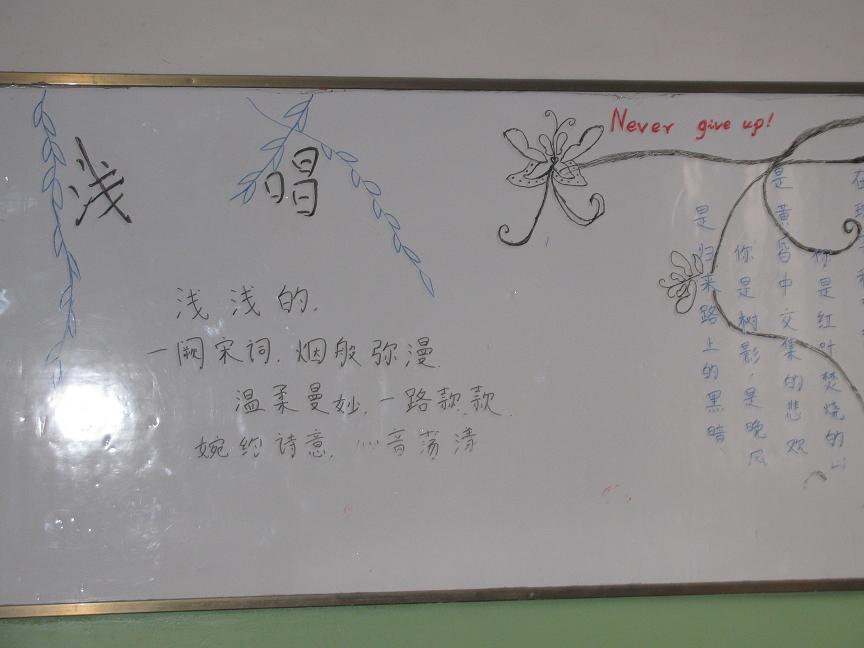 浅 唱
浅浅的,
一阙宋词,烟般弥漫,
温柔曼妙,一路款款,
婉约诗意,心音荡清
Never give up!
你是红叶焚烧的山
是黄昏中交集的悲欢
你是树影,是晚风
是归来路上的黑暗